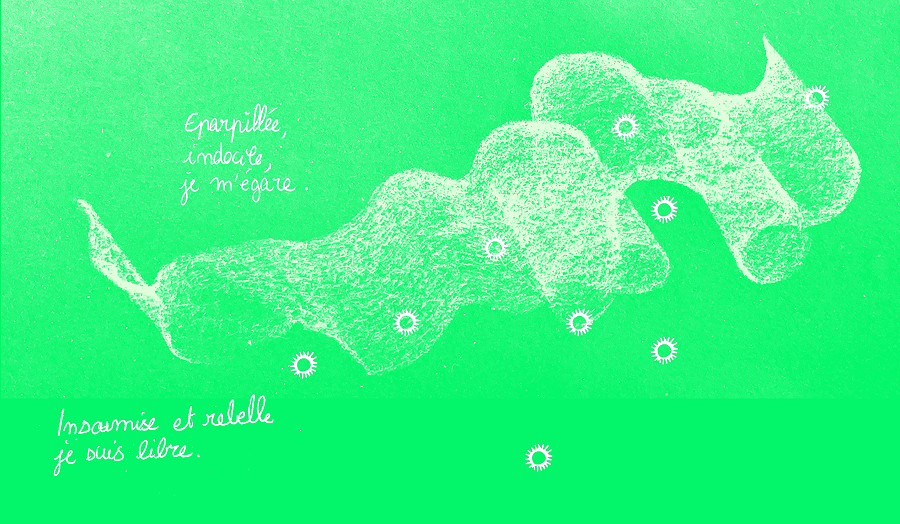 Eparpillée,
indocile,
je m'égare.
Insoumise et rebelle
je suis libre.